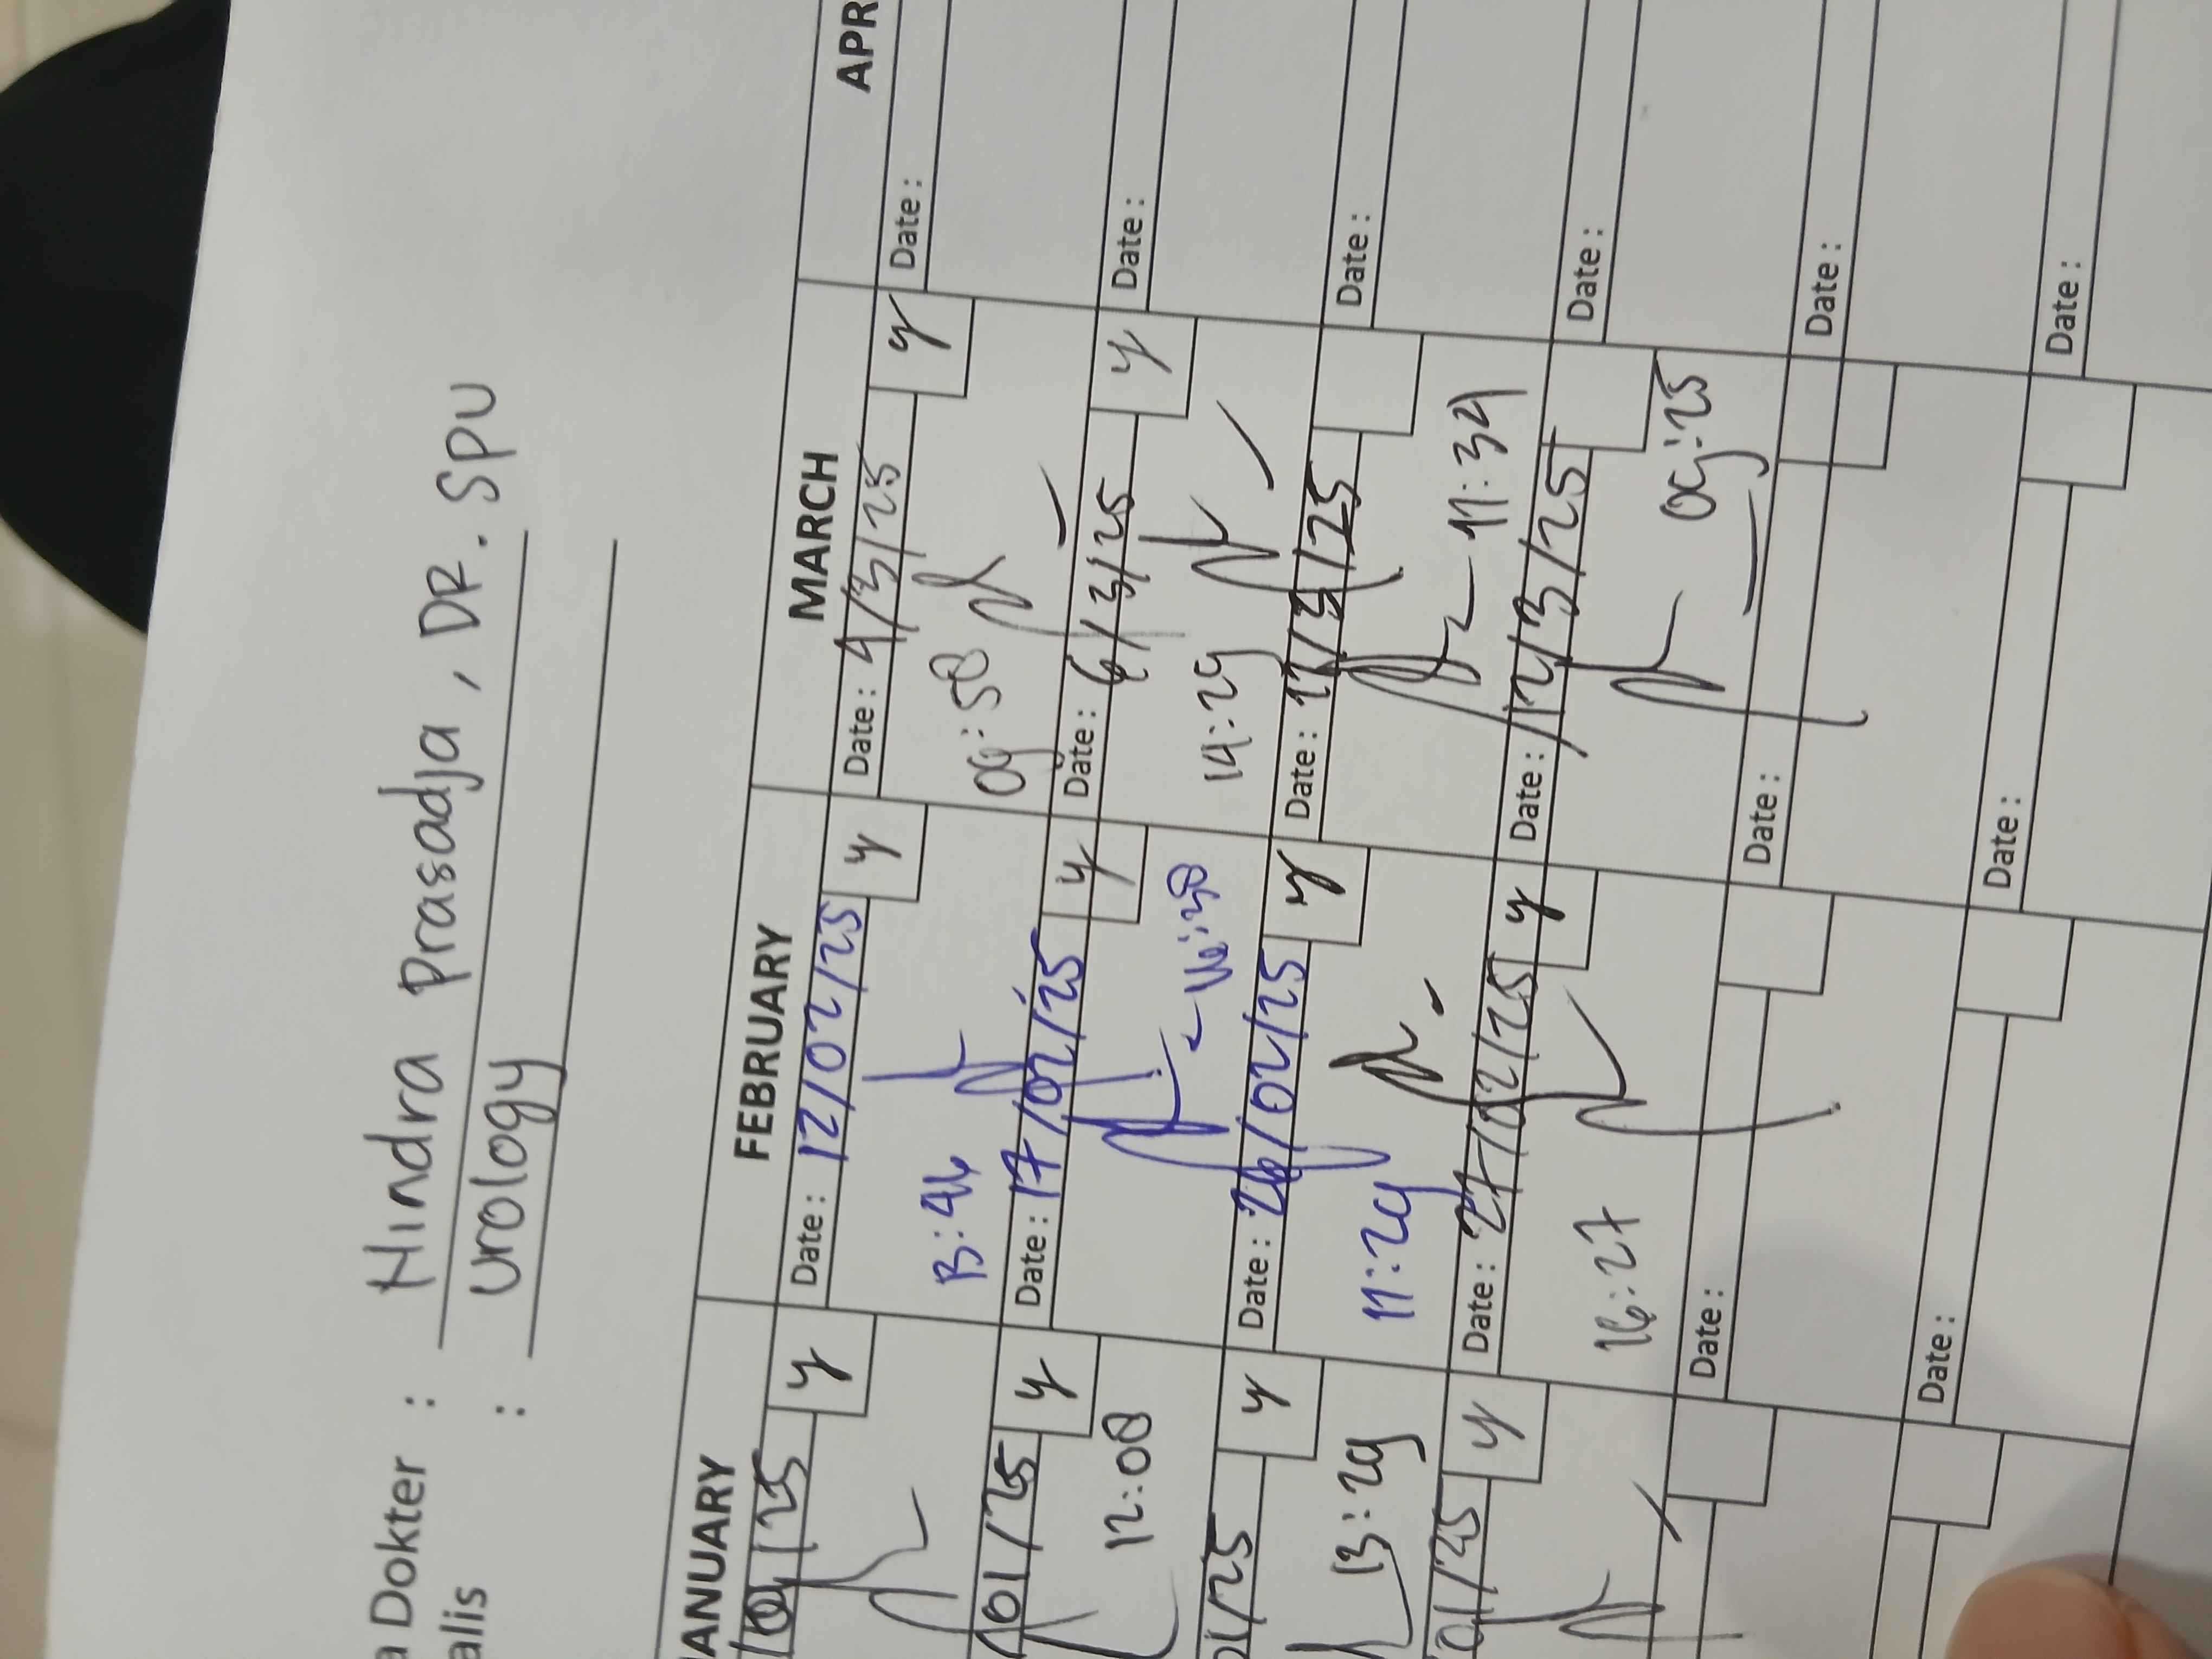 a Dokter : Hindra Prasadja, DR. SPU
alis : Urology
ANUARY FEBRUARY MARCH APR
/01/25 y Date: 12/02/25 y Date: 4/3/25 y Date:
13:46 09:58
/01/25 y Date: 17/02/25 y Date: 6/3/25 y Date:
12:08 16:38 14:29
01/25 y Date: 26/02/25 y Date: 11/3/25 Date:
13:29 11:29 11:34
01/25 y Date: 27/02/25 y Date: 12/3/25 Date:
16:27 09:25
Date: Date: Date:
Date: Date: Date: